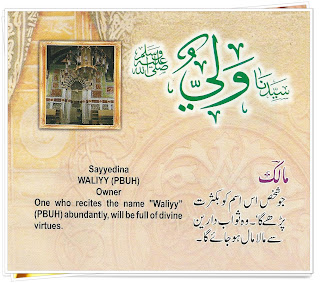 سیدنا وَلِيٌّ صلى الله عليه وسلم
Sayyedina
WALIYY (PBUH)
Owner
One who recites the name "Waliyy"
(PBUH) abundantly, will be full of divine
virtues.
مالک
جو شخص اس اسم کو بکثرت
پڑھے گا۔ وہ ثواب دارین
سے مالا مال ہو جائے گا۔